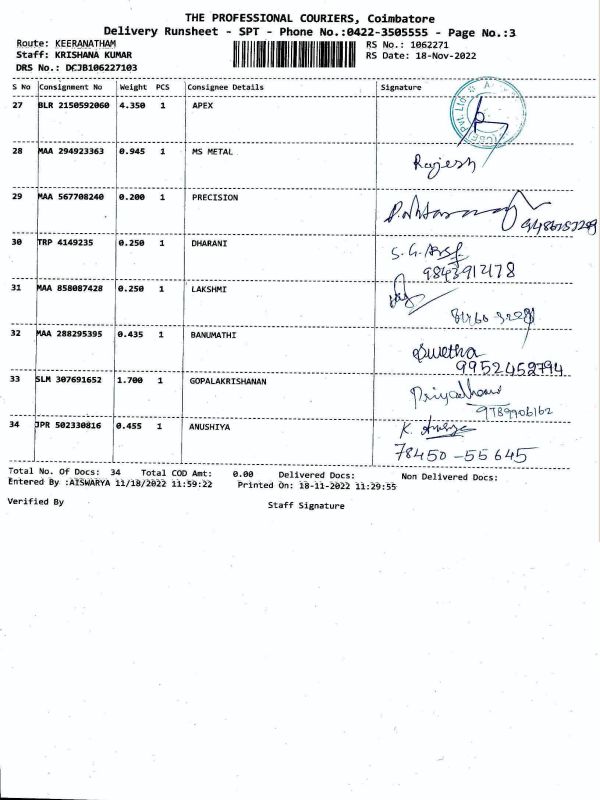 THE PROFESSIONAL COURIERS, Coimbatore
Delivery Runsheet - SPT - Phone No.:0422-3505555 - Page No.:3
Route: KEERANATHAM
RS No.: 1062271
Staff: KRISHANA KUMAR
RS Date: 18-Nov-2022
DRS No.: DCJB106227103
S No Consignment No Weight PCS Consignee Details Signature
27 BLR 2150592060 4.350 1 APEX
28 MAA 294923363 0.945 1 MS METAL Rajesh
29 MAA 567708240 0.200 1 PRECISION
30 TRP 4149235 0.250 1 DHARANI S.G.
31 MAA 858087428 0.250 1 LAKSHMI
32 MAA 288295395 0.435 1 BANUMATHI Swetha
9952452794
33 SLM 307691652 1.700 1 GOPALAKRISHANAN
9789906162
34 JPR 502330816 0.455 1 ANUSHIYA K.
78450-55645
Total No. Of Docs: 34 Total COD Amt: 0.00 Delivered Docs: Non Delivered Docs:
Entered By :AISWARYA 11/18/2022 11:59:22 Printed On: 18-11-2022 11:29:55
Verified By
Staff Signature